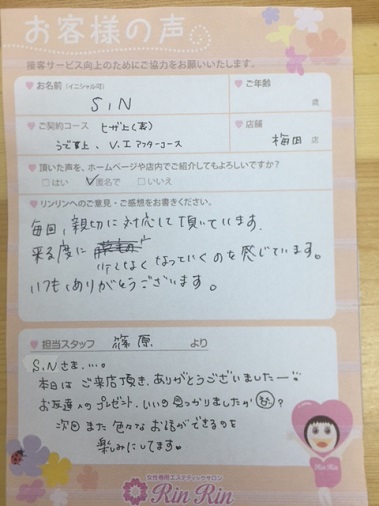 お客様の声
接客サービス向上のためにご協力をお願いいたします。
お名前(イニシャル可)
S.N
ご年齢
歳
ご契約コース ヒザ上(表)
うで上、V.I アフターコース
店舗
梅田 店
頂いた声を、ホームページや店内でご紹介してもよろしいですか?
□はい ☑匿名で □いいえ
リンリンへのご意見・ご感想をお書きください。
毎回、親切に対応して頂いています。
来る度に
少しずつなくなっていくのを感じています。
いつもありがとうございます。
担当スタッフ 篠原 より
S.Nさま...。
本日はご来店頂き、ありがとうございましたー
お友達へのプレゼント、いいの見つかりましたか?
次回また色々なお話ができるのを
楽しみにしてます。
Rin Rin
女性専用エステティックサロン
Rin Rin